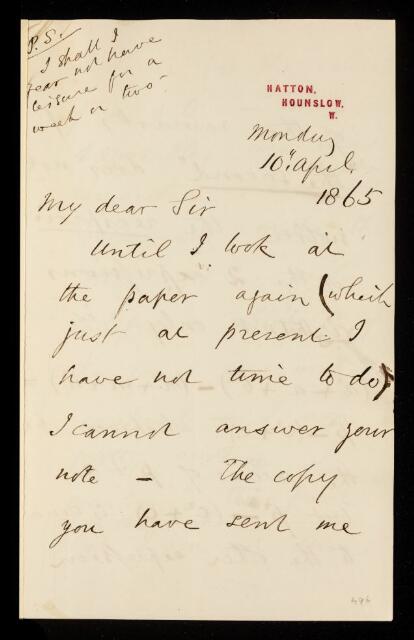 P.S.
I shall I
fear not have
leisure for a
week or two-
HATTON,
HOUNSLOW,
W.
Monday
10th April
1865
My dear Sir
Until I look at
the paper again (which
just at present I
have not time to do)
I cannot answer your
note - The copy
you have sent me
496